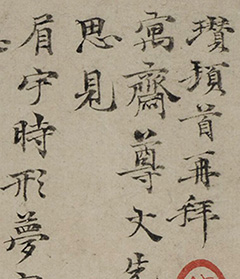 瓚頓首再拜
寓齋尊丈先
思見
眉宇時形夢